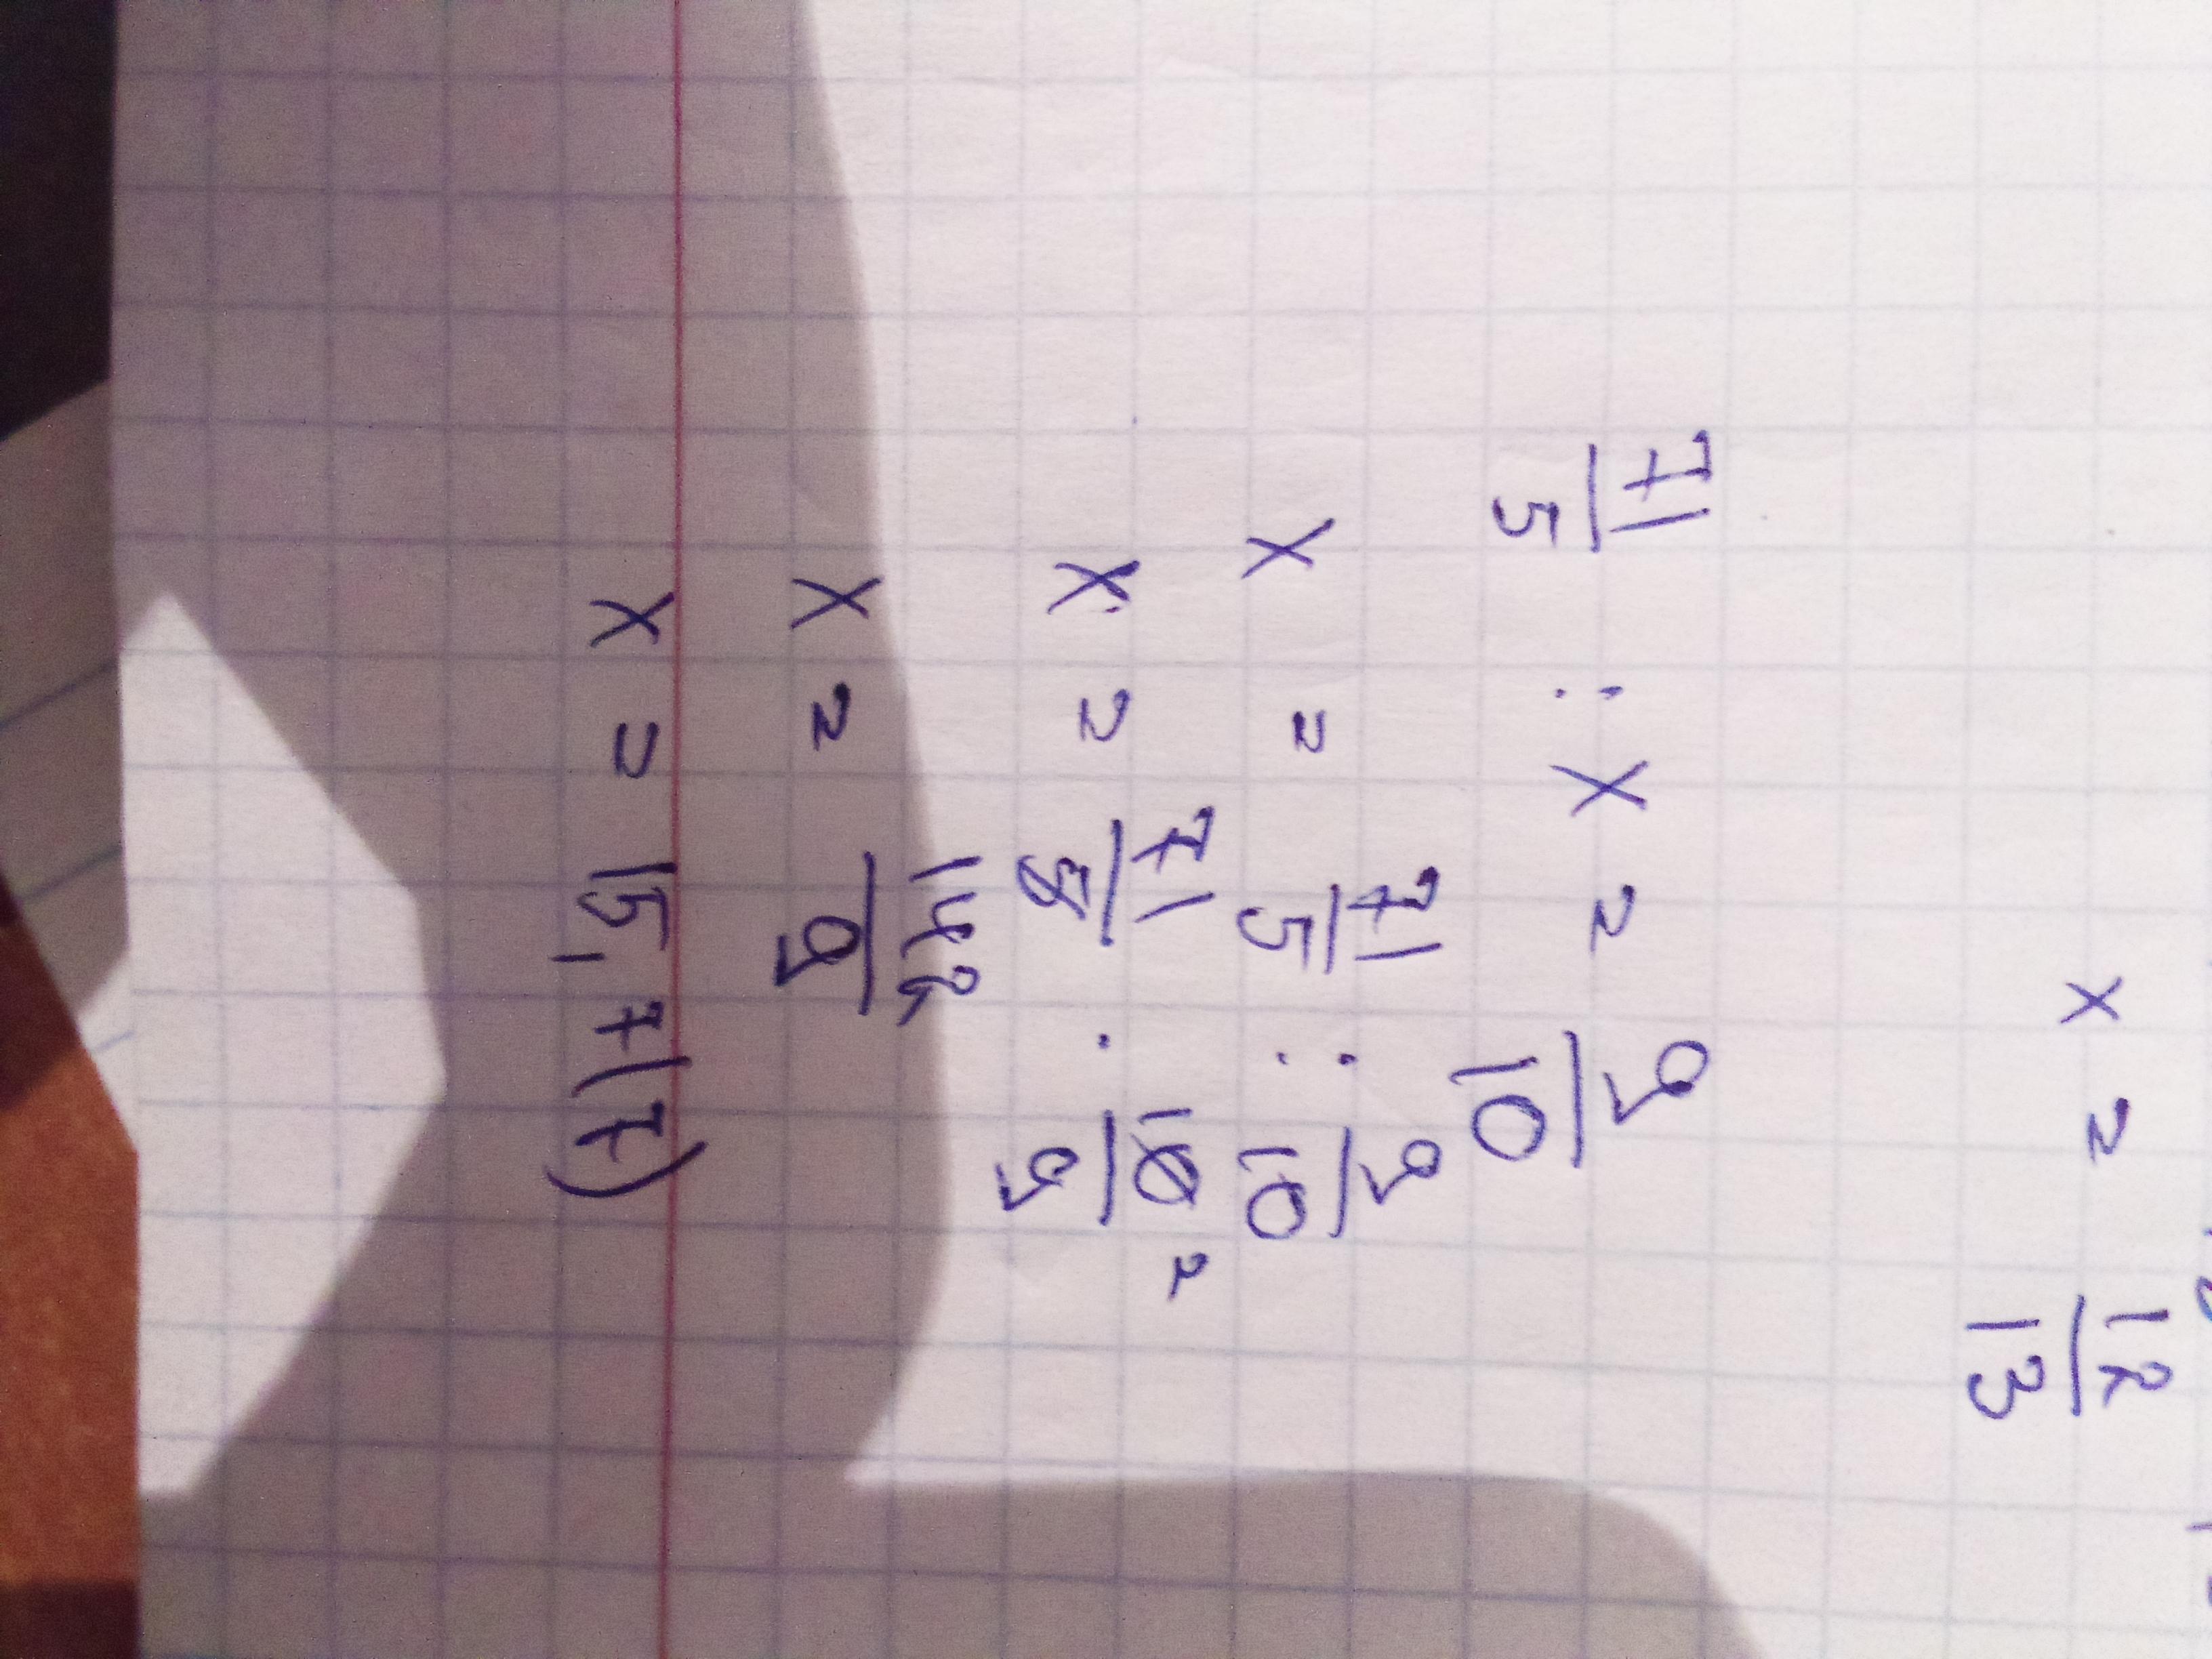 x = 12/13
71/5 : x = 9/10
x = 71/5 : 9/10
x = 71/5 · 10/9 2
x = 142/9
x = 15,7(7)